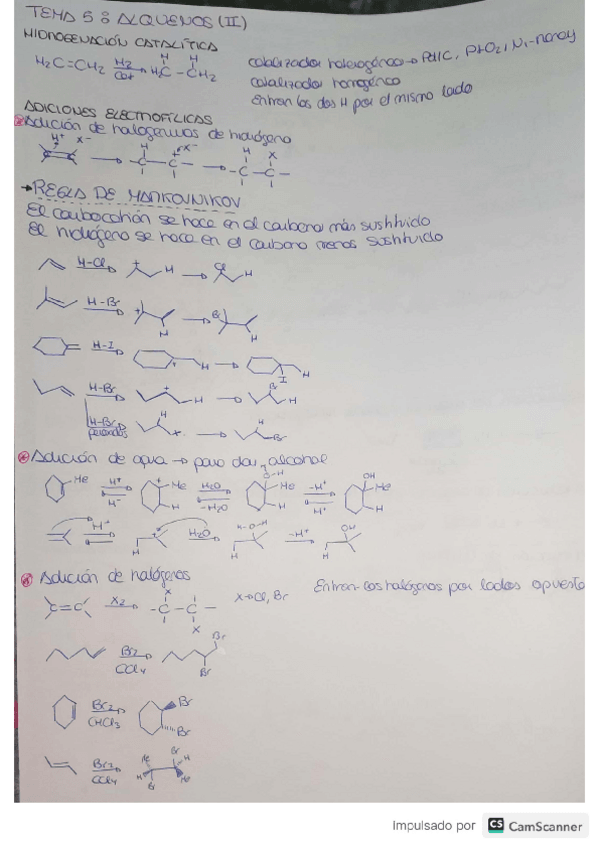 TEMA 5: ALQUENOS (II)
HIDROGENACIÓN CATALÍTICA
H2C=CH2 H2 Cat H2C-CH2 H H
catalizador heterogéneo → Pd/C, PtO2, Ni-raney
catalizador homogéneo
Entran los dos H por el mismo lado
ADICIONES ELECTROFÍLICAS
Adición de halogenuros de hidrógeno
H+ X-
H X- -C-C- H X -C-C-
→ REGLA DE MARKOVNIKOV
El carbocatión se hace en el carbono más sustituido
El hidrógeno se hace en el carbono menos sustituido
H-Cl + H Cl H
H-Br + H Br H
H-I + H I H
H-Br + H Br H
H-Br peróxidos H H Br
Adición de agua → para dar alcohol
Me H+ H- + Me H H2O -H2O H-O-H Me H -H+ H+ OH Me H
H+ H + H2O H-O-H H -H+ OH H
Adición de halógenos
Entran los halógenos por lados opuesto
C=C X2 X -C-C- X X→Cl, Br
Br2 CCl4 Br Br
Br2 CHCl3 Br Br
Br2 CCl4 Me Br H H Br Me
Impulsado por CS CamScanner